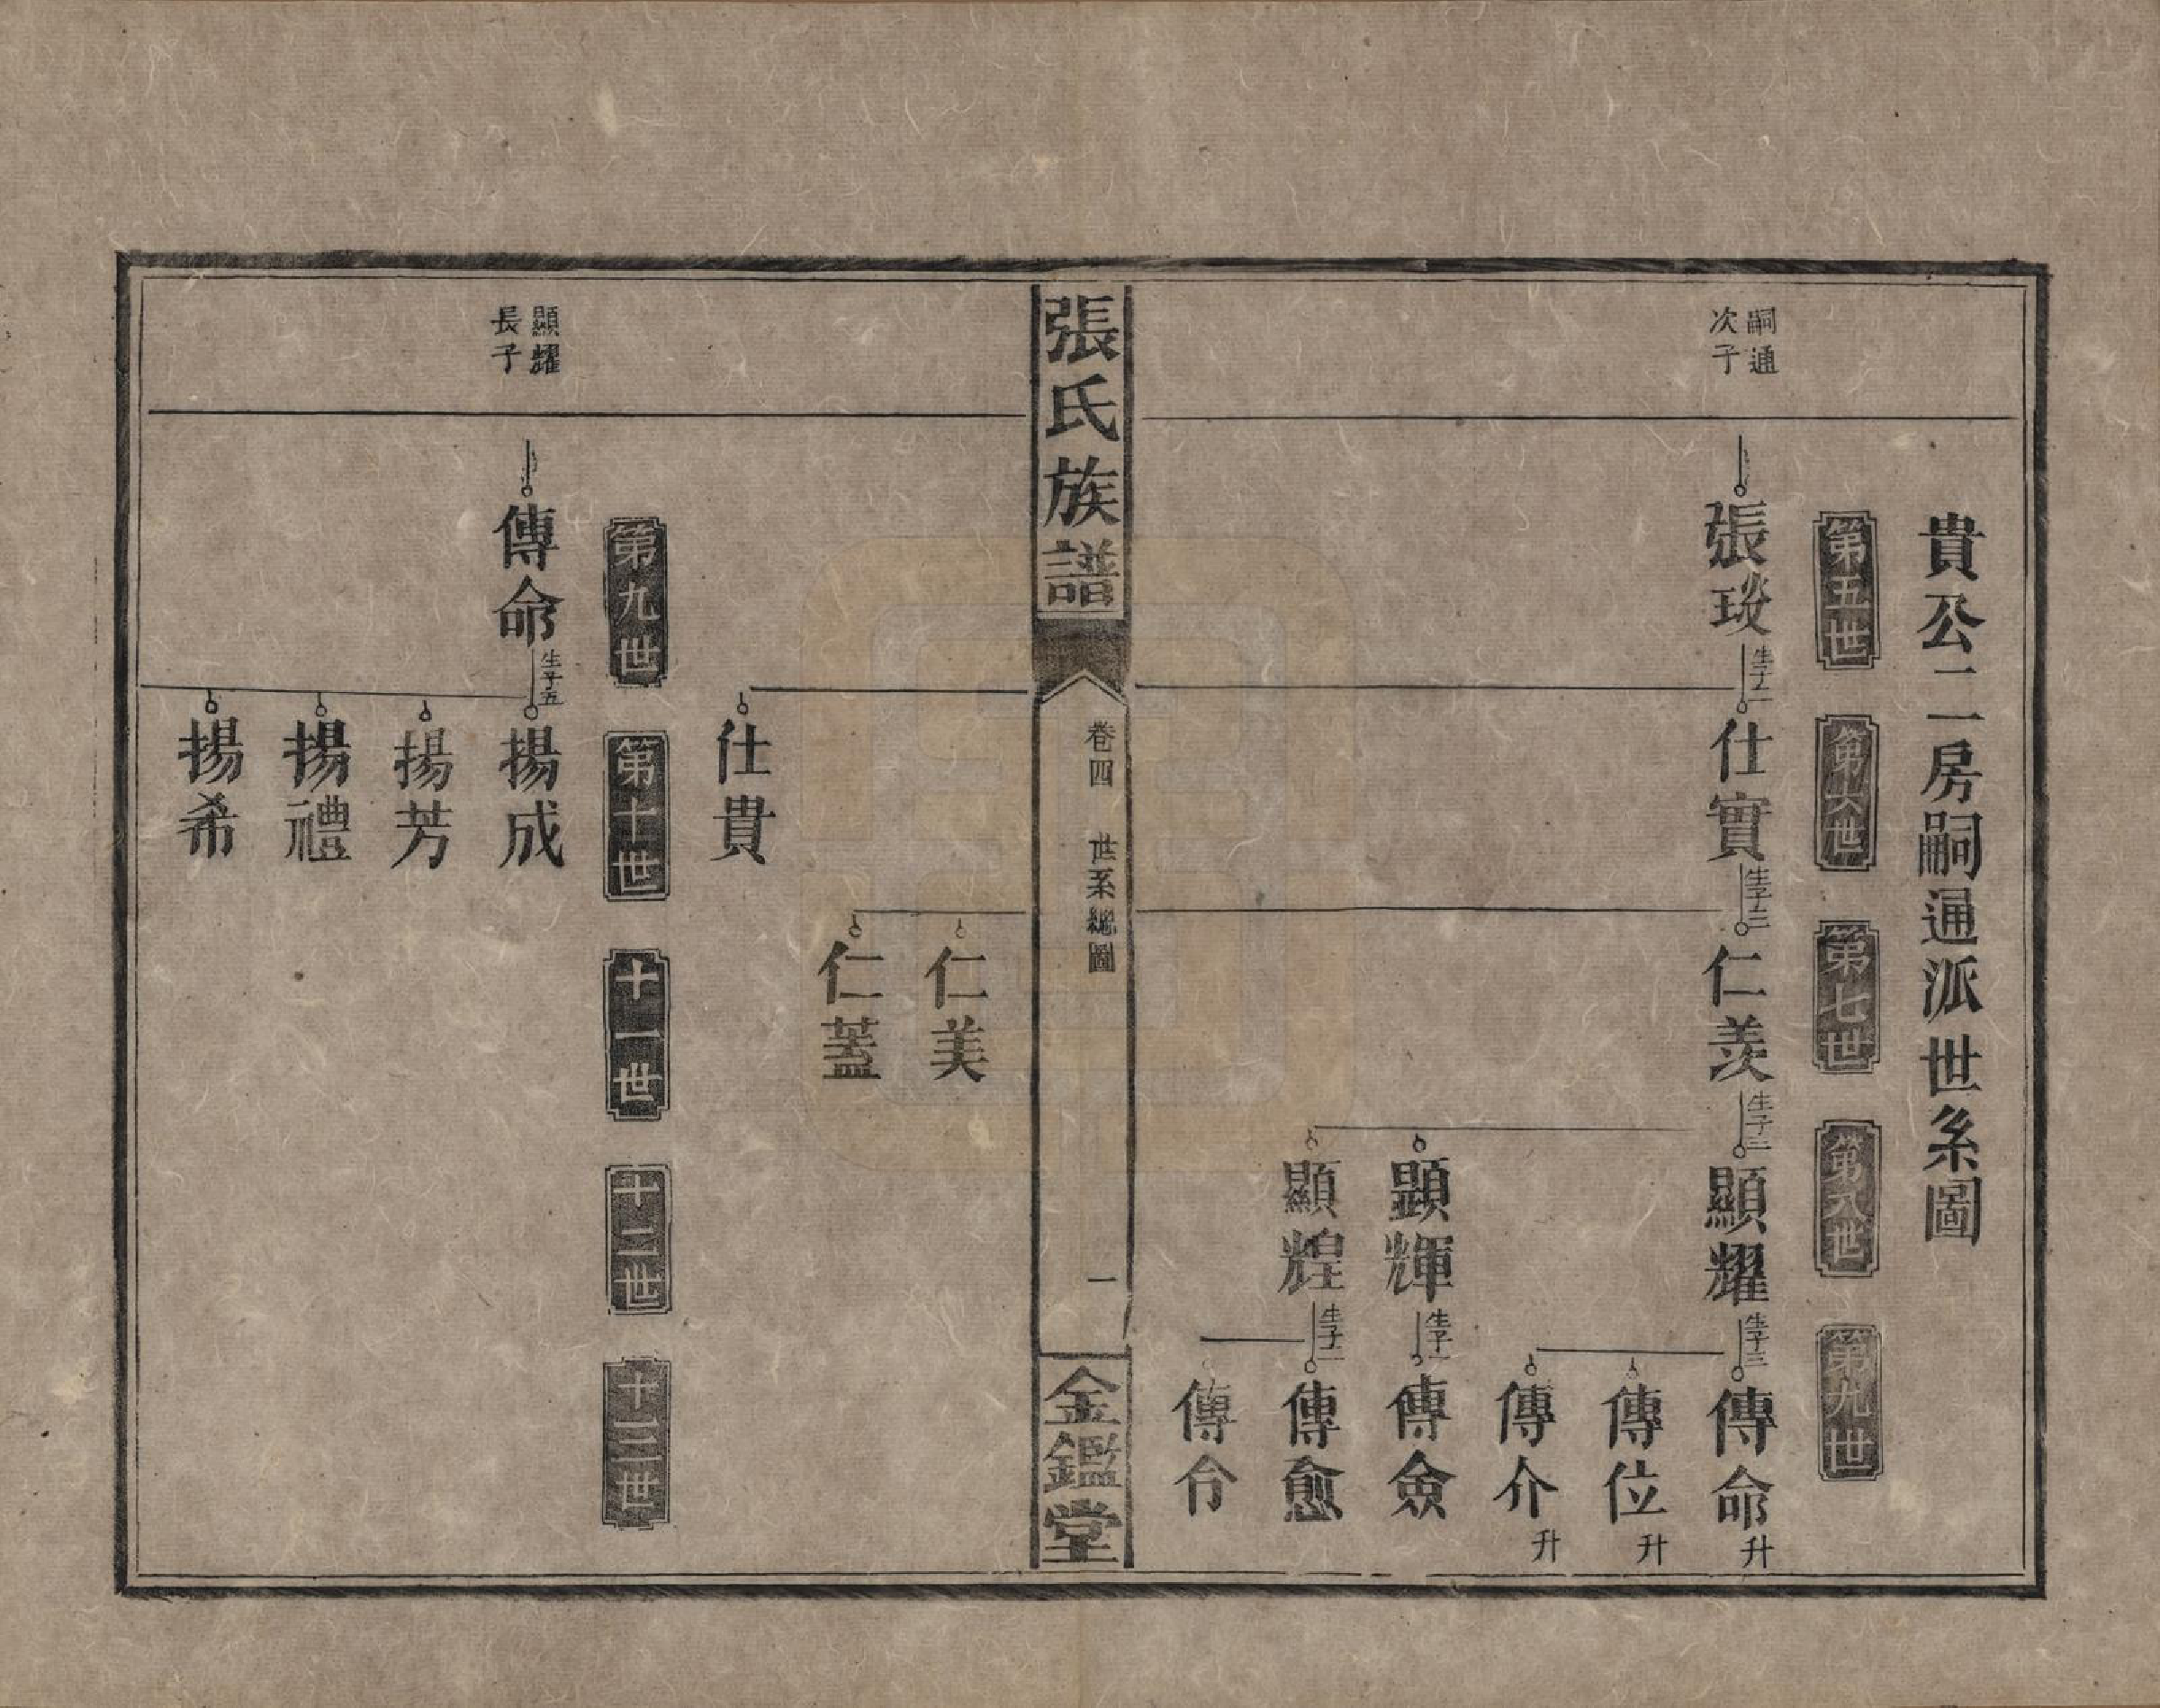 貴公二房嗣通派世系圖
第五世
第六世
第七世
第八世
第九世
嗣通
次子
張琰
生子二
仕實
生子三
仁羨
生子三
顯耀
生子三
傳命升
傳位升
傳介升
顯輝
生子一
傳僉
顯煌
生子二
傳愈
傳令
張氏族譜
卷四
世系總圖
一
金鑑堂
仁美
仁蓋
仕貴
第九世
第十世
十一世
十二世
十三世
顯耀
長子
傳命
生子五
揚成
揚芳
揚禮
揚希